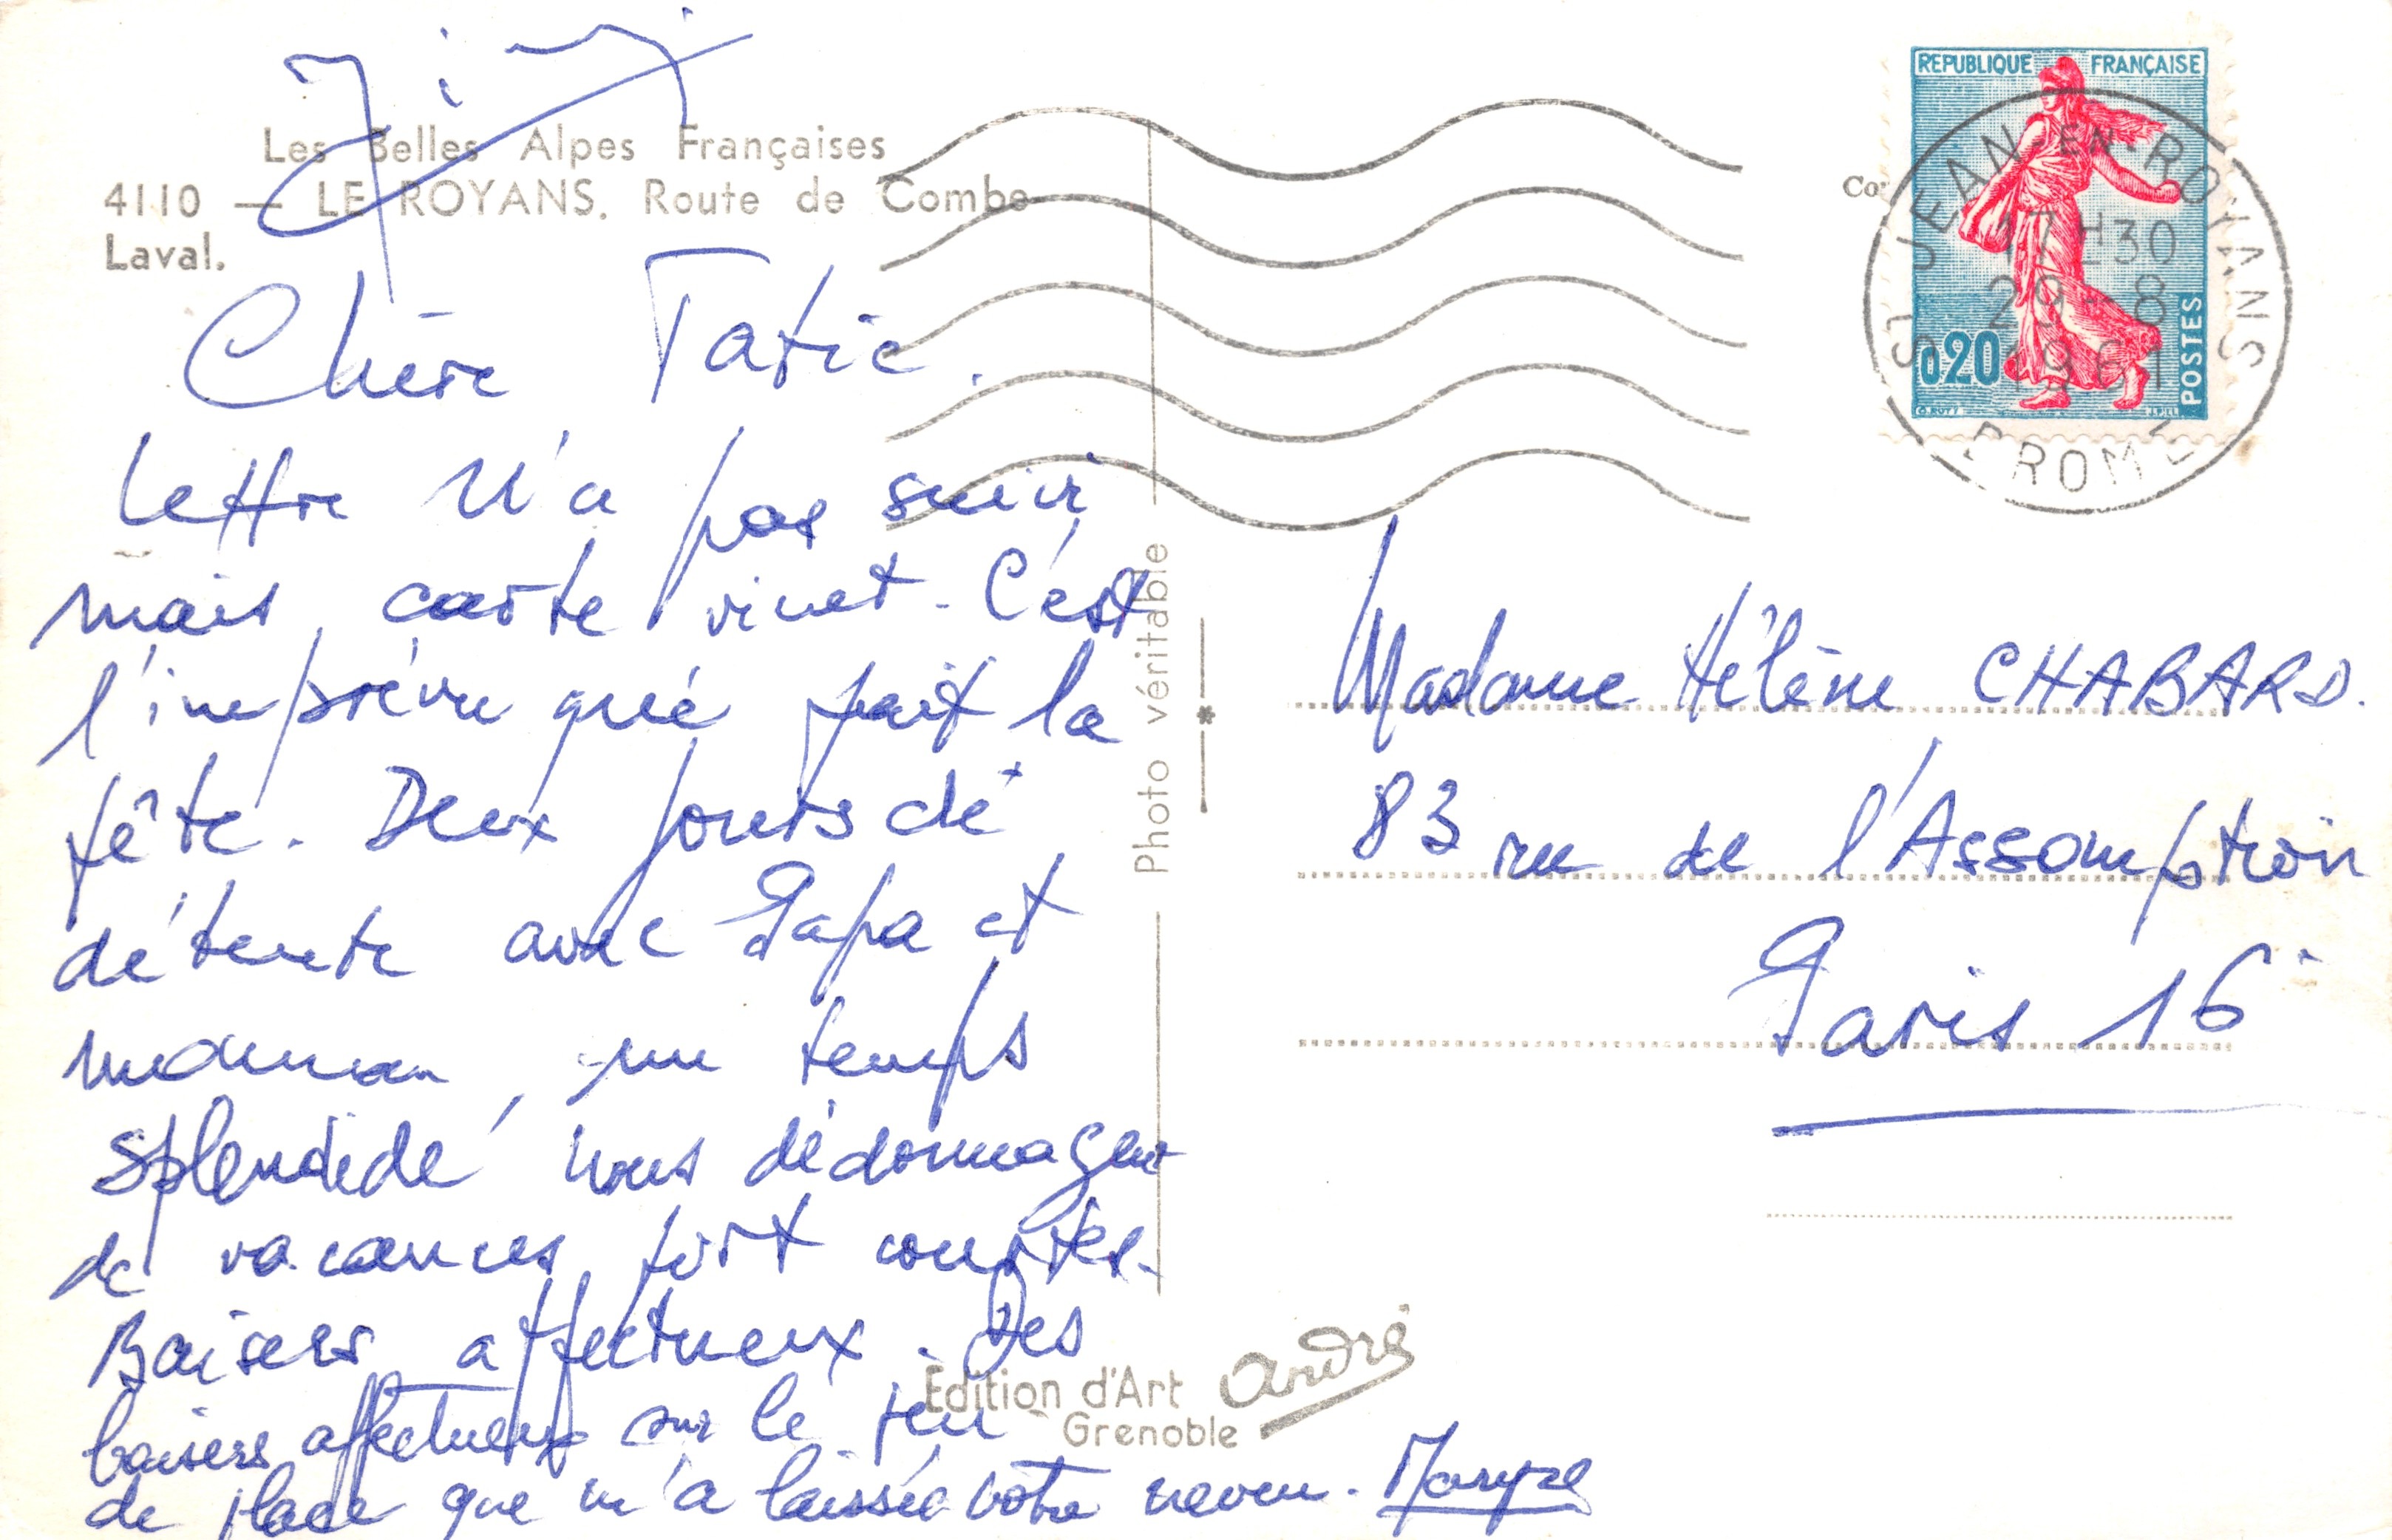 Les Belles Alpes Françaises
4110 — LE ROYANS. Route de Combe
Laval.
Chère Tatie.
lettre n'a pas suivi
mais carte vient. C'est
l'imprévu qui fait la
fête. Deux jours de
détente avec Papa et
maman, un temps
splendide nous dédommagent
de vacances fort courtes.
Baisers affectueux. Des
baisers affectueux sur le peu
de place que m'a laissée votre neveu. Maryse
Photo véritable
Edition d'Art André
Grenoble
REPUBLIQUE FRANÇAISE
0,20
POSTES
ST JEAN-EN-ROYANS
17H30
29-8
1961
DROME
Co
Madame Hélène CHABARD.
83 rue de l'Assomption
Paris 16e